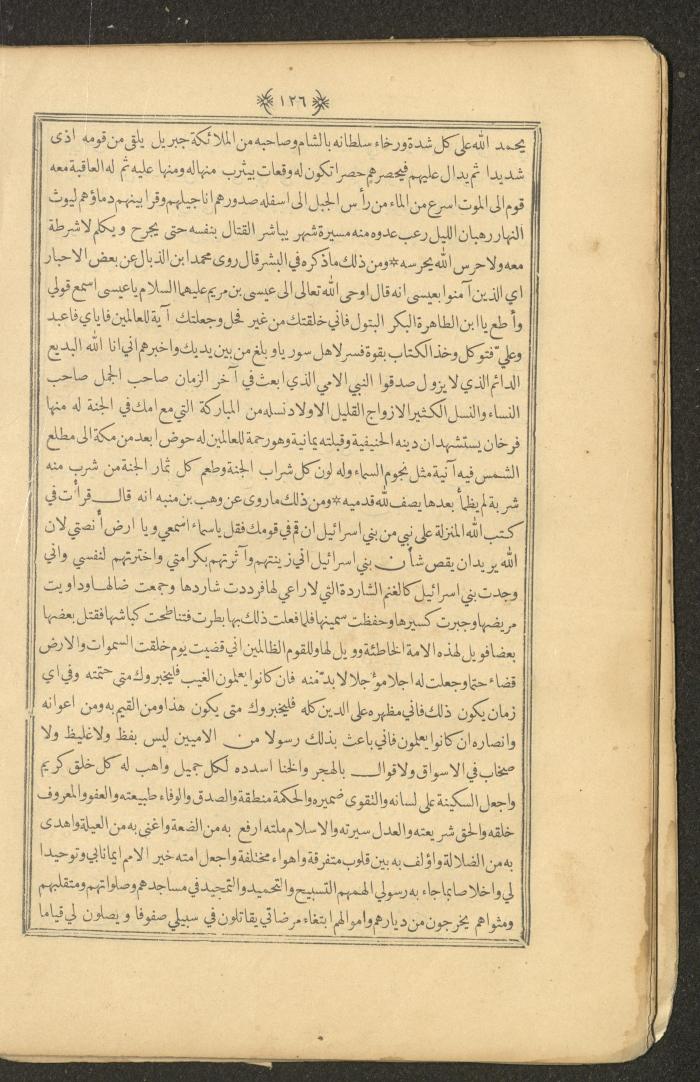 ١٢٦
يحمد الله على كل شدة ورخاء سلطانه بالشام وصاحبه من الملائكة جبريل يلقى من قومه اذى
شديدا ثم يدال عليهم فيحصرهم حصرا تكون له وقعات بيثرب منها له ومنها عليه ثم له العاقبة معه
قوم الى الموت اسرع من الماء من رأس الجبل الى اسفله صدورهم اناجيلهم وقرابينهم دماؤهم ليوث
النهار رهبان الليل رعب عدوه منه مسيرة شهر يباشر القتال بنفسه حتى يجرح ويكلم لا شرطة
معه ولا حرس الله يحرسه * ومن ذلك ما ذكره في البشر قال روى محمد ابن الذبال عن بعض الاحبار
اي الذين آمنوا بعيسى انه قال اوحى الله تعالى الى عيسى بن مريم عليهما السلام يا عيسى اسمع قولي
وأطع يا ابن الطاهرة البكر البتول فاني خلقتك من غير فحل وجعلتك آية للعالمين فاياي فاعبد
وعليّ فتوكل وخذ الكتاب بقوة فسر لاهل سوريا وبلغ من بين يديك واخبرهم اني انا الله البديع
الدائم الذي لا يزول صدقوا النبي الامي الذي ابعث في آخر الزمان صاحب الجمل صاحب
النساء والنسل الكثير الازواج القليل الاولاد نسله من المباركة التي مع امك في الجنة له منها
فرخان يستشهدان دينه الحنيفية وقبلته يمانية وهو رحمة للعالمين له حوض ابعد من مكة الى مطلع
الشمس فيه آنية مثل نجوم السماء وله لون كل شراب الجنة وطعم كل ثمار الجنة من شرب منه
شربة لم يظمأ بعدها يصف لله قدميه * ومن ذلك ما روى عن وهب بن منبه انه قال قرأت في
كتب الله المنزلة على نبي من بني اسرائيل ان قم في قومك فقل يا سماء اسمعي ويا ارض أنصتي لان
الله يريد ان يقص شأن بني اسرائيل اني زينتهم وآثرتهم بكرامتي واخترتهم لنفسي واني
وجدت بني اسرائيل كالغنم الشاردة التي لا راعي لها فرددت شاردها وجمعت ضالها وداويت
مريضها وجبرت كسيرها وحفظت سمينها فلما فعلت ذلك بها بطرت فتناطحت كباشها فقتل بعضها
بعضا فويل لهذه الامة الخاطئة وويل لها وللقوم الظالمين اني قضيت يوم خلقت السموات والارض
قضاء حتما وجعلت له اجلا مؤجلا لا بد منه فان كانوا يعلمون الغيب فليخبروك متى حتمته وفي اي
زمان يكون ذلك فاني مظهره على الدين كله فليخبروك متى يكون هذا ومن القيم به ومن اعوانه
وانصاره ان كانوا يعلمون فاني باعث بذلك رسولا من الاميين ليس بفظ ولا غليظ ولا
صخاب في الاسواق ولا قوال بالهجر والخنا اسدده لكل جميل واهب له كل خلق كريم
واجعل السكينة على لسانه والتقوى ضميره والحكمة منطقة والصدق والوفاء طبيعته والعفو والمعروف
خلقه والحق شريعته والعدل سيرته والاسلام ملته ارفع به من الضعة واغنى به من العيلة واهدى
به من الضلالة واؤلف به بين قلوب متفرقة واهواء مختلفة واجعل امته خير الامم ايمانا بي وتوحيدا
لي واخلاصا بما جاء به رسولي الهمهم التسبيح والتحميد والتمجيد في مساجدهم وصلواتهم ومتقلبهم
ومثواهم يخرجون من ديارهم واموالهم ابتغاء مرضاتي يقاتلون في سبيلي صفوفا ويصلون لي قياما